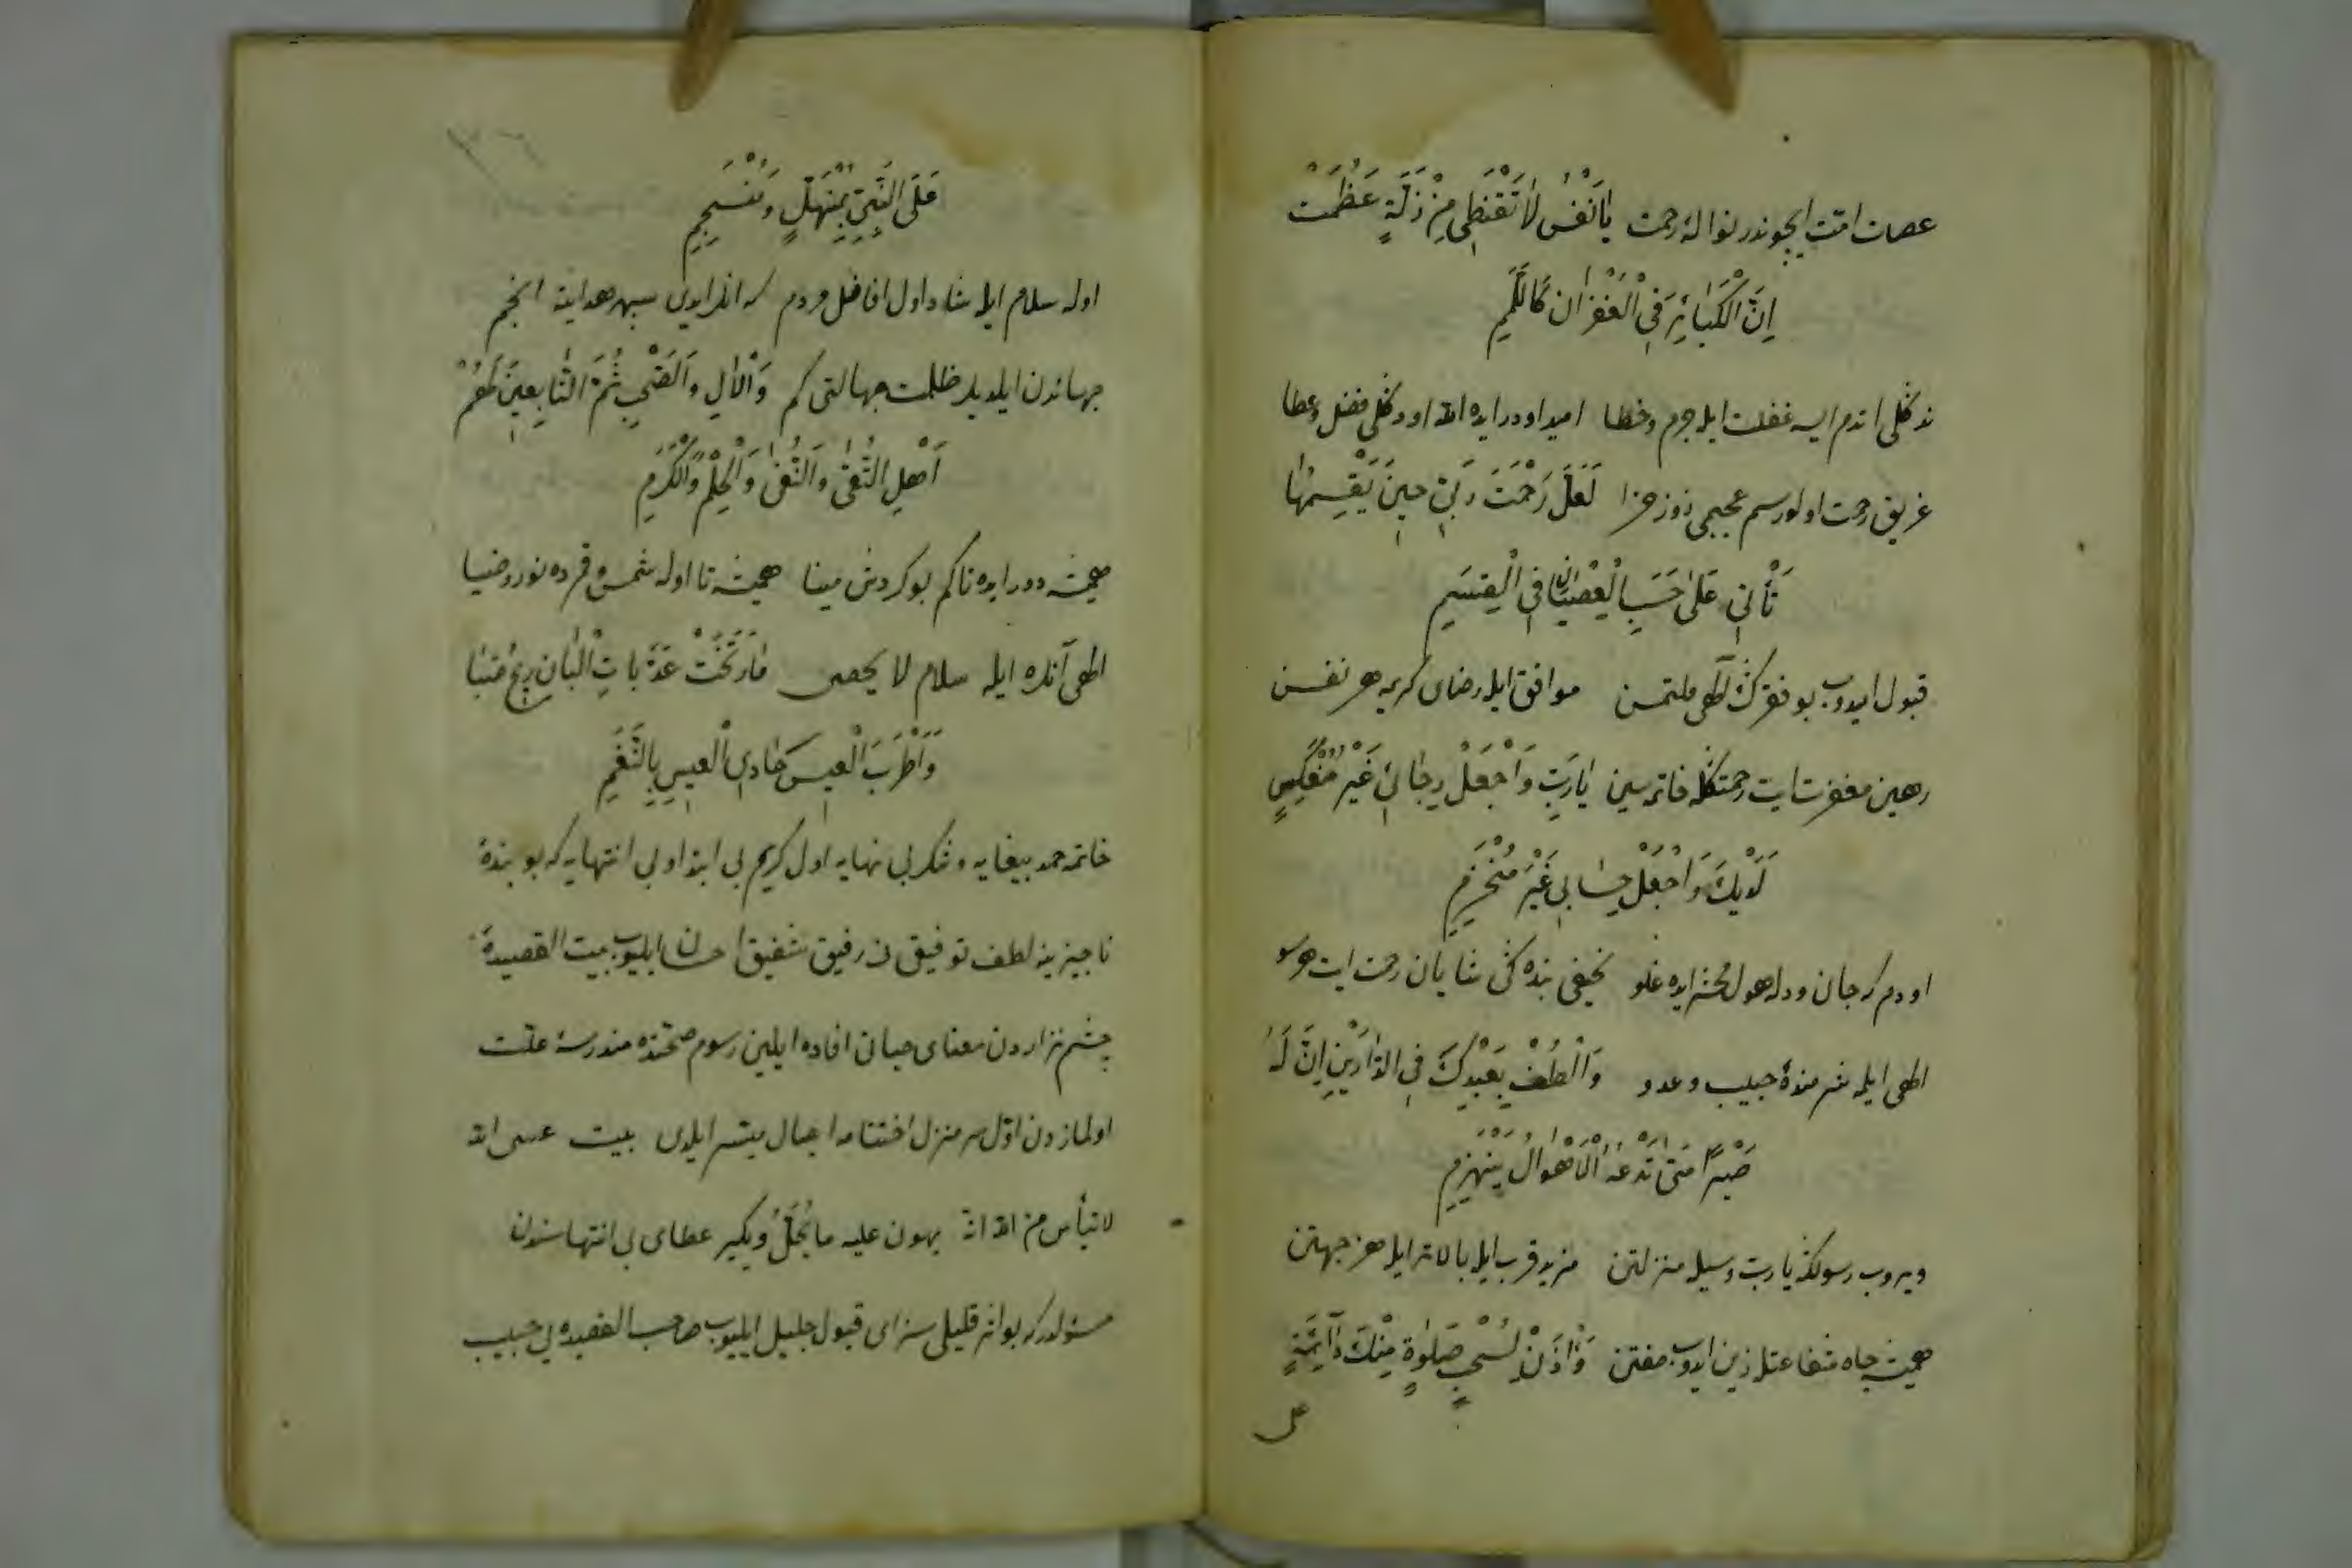 عصات امت ایچوندر نوالهٔ رحمت یَا نَفْسُ لَا تَقْنَطِی مِنْ زَلَّةٍ عَظُمَتْ
اِنَّ الْکَبَائِرَ فِی الْغُفْرَانِ کَاللَّمَمِ
نه کلی اتدم ایسه غفلت ایله جرم و خطا امید اودر ایده الله اودکلی فضل و عطا
غریق رحمت اولورسم عجبمی روز جزا لَعَلَّ رَحْمَتَ رَبِّی حِینَ یَقْسِمُهَا
تَأْتِی عَلَی حَسَبِ الْعِصْیَانِ فِی الْقِسَمِ
قبول ایدوب بو فقرك الهی ملتمسن موافق ایله رضای کریمه هر نفسن
رهین مغفرت ایت رحمتکله خاتمه سین یَا رَبِّ وَاجْعَلْ رَجَائِی غَیْرَ مُنْعَکِسٍ
لَدَیْكَ وَاجْعَلْ حِسَابِی غَیْرَ مُنْخَرِمِ
اودم که جان و دله هول محشر ایده غلو نحیفی بنده کی شایان رحمت ایت هرسو
الهی ایلمه شرمندهٔ حبیب و عدو وَالْطُفْ بِعَبْدِكَ فِی الدَّارَیْنِ اِنَّ لَهُ
صَبْرًا مَتَی تَدْعُهُ الْاَهْوَالُ یَنْهَزِمِ
ویروب رسولکه یا رب وسیله منزلتن مزید قرب ایله بالاتر ایله هر جهتن
همیشه جاه شفاعتله زین ایدوب صفتن وَأْذَنْ لِسُحْبِ صَلٰوةٍ مِنْكَ دَآئِمَةٍ
علی
عَلَی النَّبِیِّ بِمُنْهَلٍّ وَمُنْسَجِمِ
اوله سلام ایله شاد اول افاضل مردم که انلر ایدی سپهر هدایته انجم
جهاندن ایلدیلر ظلمت جهالتی کم وَالْاٰلِ وَالصَّحْبِ ثُمَّ التَّابِعِینَ لَهُمْ
اَهْلِ التُّقَی وَالنُّقَی وَالْحِلْمِ وَالْکَرَمِ
همیشه دور ایده تاکم بو کردش مینا همیشه تا اوله شمس و قمرده نور و ضیا
الهی آنلره ایله سلام لا یحصی مَا رَنَّحَتْ عَذَبَاتِ الْبَانِ رِیحُ صَبَا
وَاَطْرَبَ الْعِیسَ حَادِی الْعِیسِ بِالنَّغَمِ
خاتمه حمد بیغایه و شکر بی نهایه اول کریم بی ابتدا و بی انتهایه که بو بندهٔ
ناچیزینه لطف توفیقی رفیق شفیق احسان ایلیوب بیت القصیدهٔ
چشم نزاردن معنای حیاتی افاده ایلین رسوم صحتنده مندرسهٔ علت
اولمازدن اول سر منزل اختتامه ایصال میسر ایلدی بیت عسی الله
لا تیأس من الله انه یهون علیه ما یُجَلُّ ویکبر عطای بی انتهاسندن
مسئولدرکه بو اثر قلیلی سزای قبول جلیل ایلیوب صاحب القصیده یی حبیب